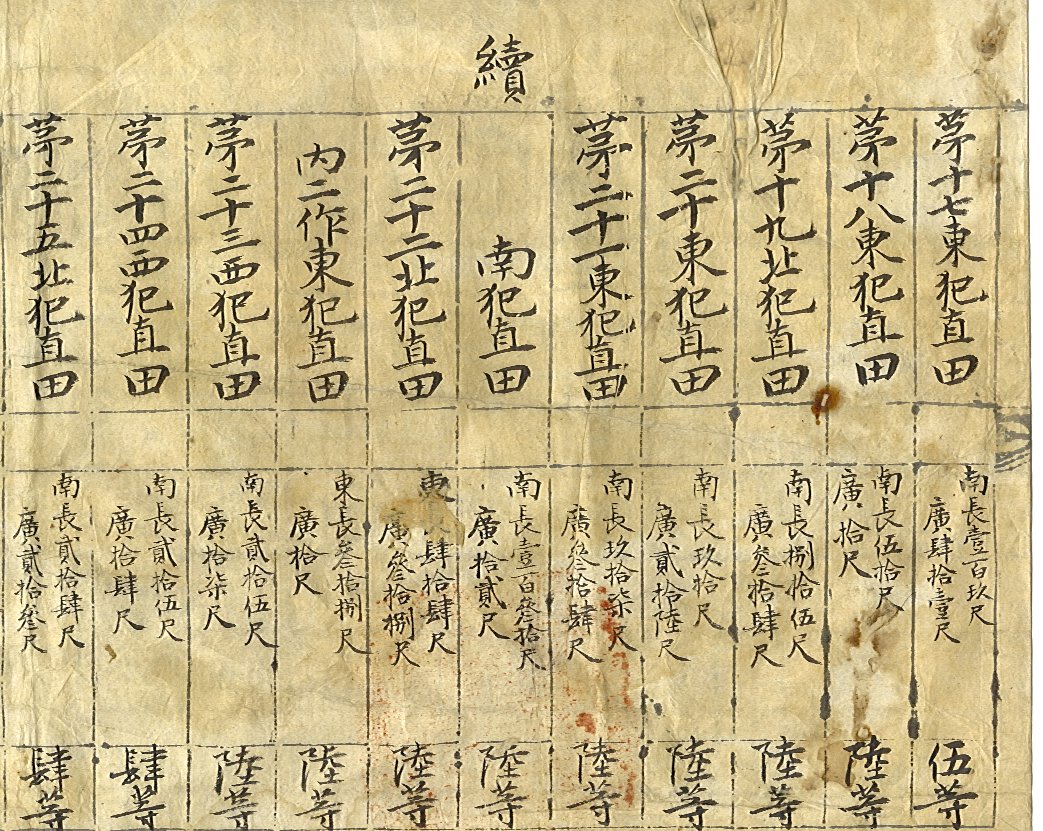 續
苐十七東犯直田
南長壹百玖尺
廣肆拾壹尺
伍等
苐十八東犯直田
南長伍拾尺
廣拾尺
陸等
苐十九北犯直田
南長捌拾伍尺
廣叅拾肆尺
陸等
苐二十東犯直田
南長玖拾尺
廣貳拾陸尺
陸等
苐二十一東犯直田
南長玖拾柒尺
廣叅拾肆尺
陸等
南犯直田
南長壹百叅拾尺
廣拾貳尺
陸等
苐二十二北犯直田
東長肆拾肆尺
廣叅拾捌尺
陸等
內二作東犯直田
東長叅拾捌尺
廣拾尺
陸等
苐二十三西犯直田
南長貳拾伍尺
廣拾柒尺
陸等
苐二十四西犯直田
南長貳拾伍尺
廣拾肆尺
肆等
苐二十五北犯直田
南長貳拾肆尺
廣貳拾叅尺
肆等